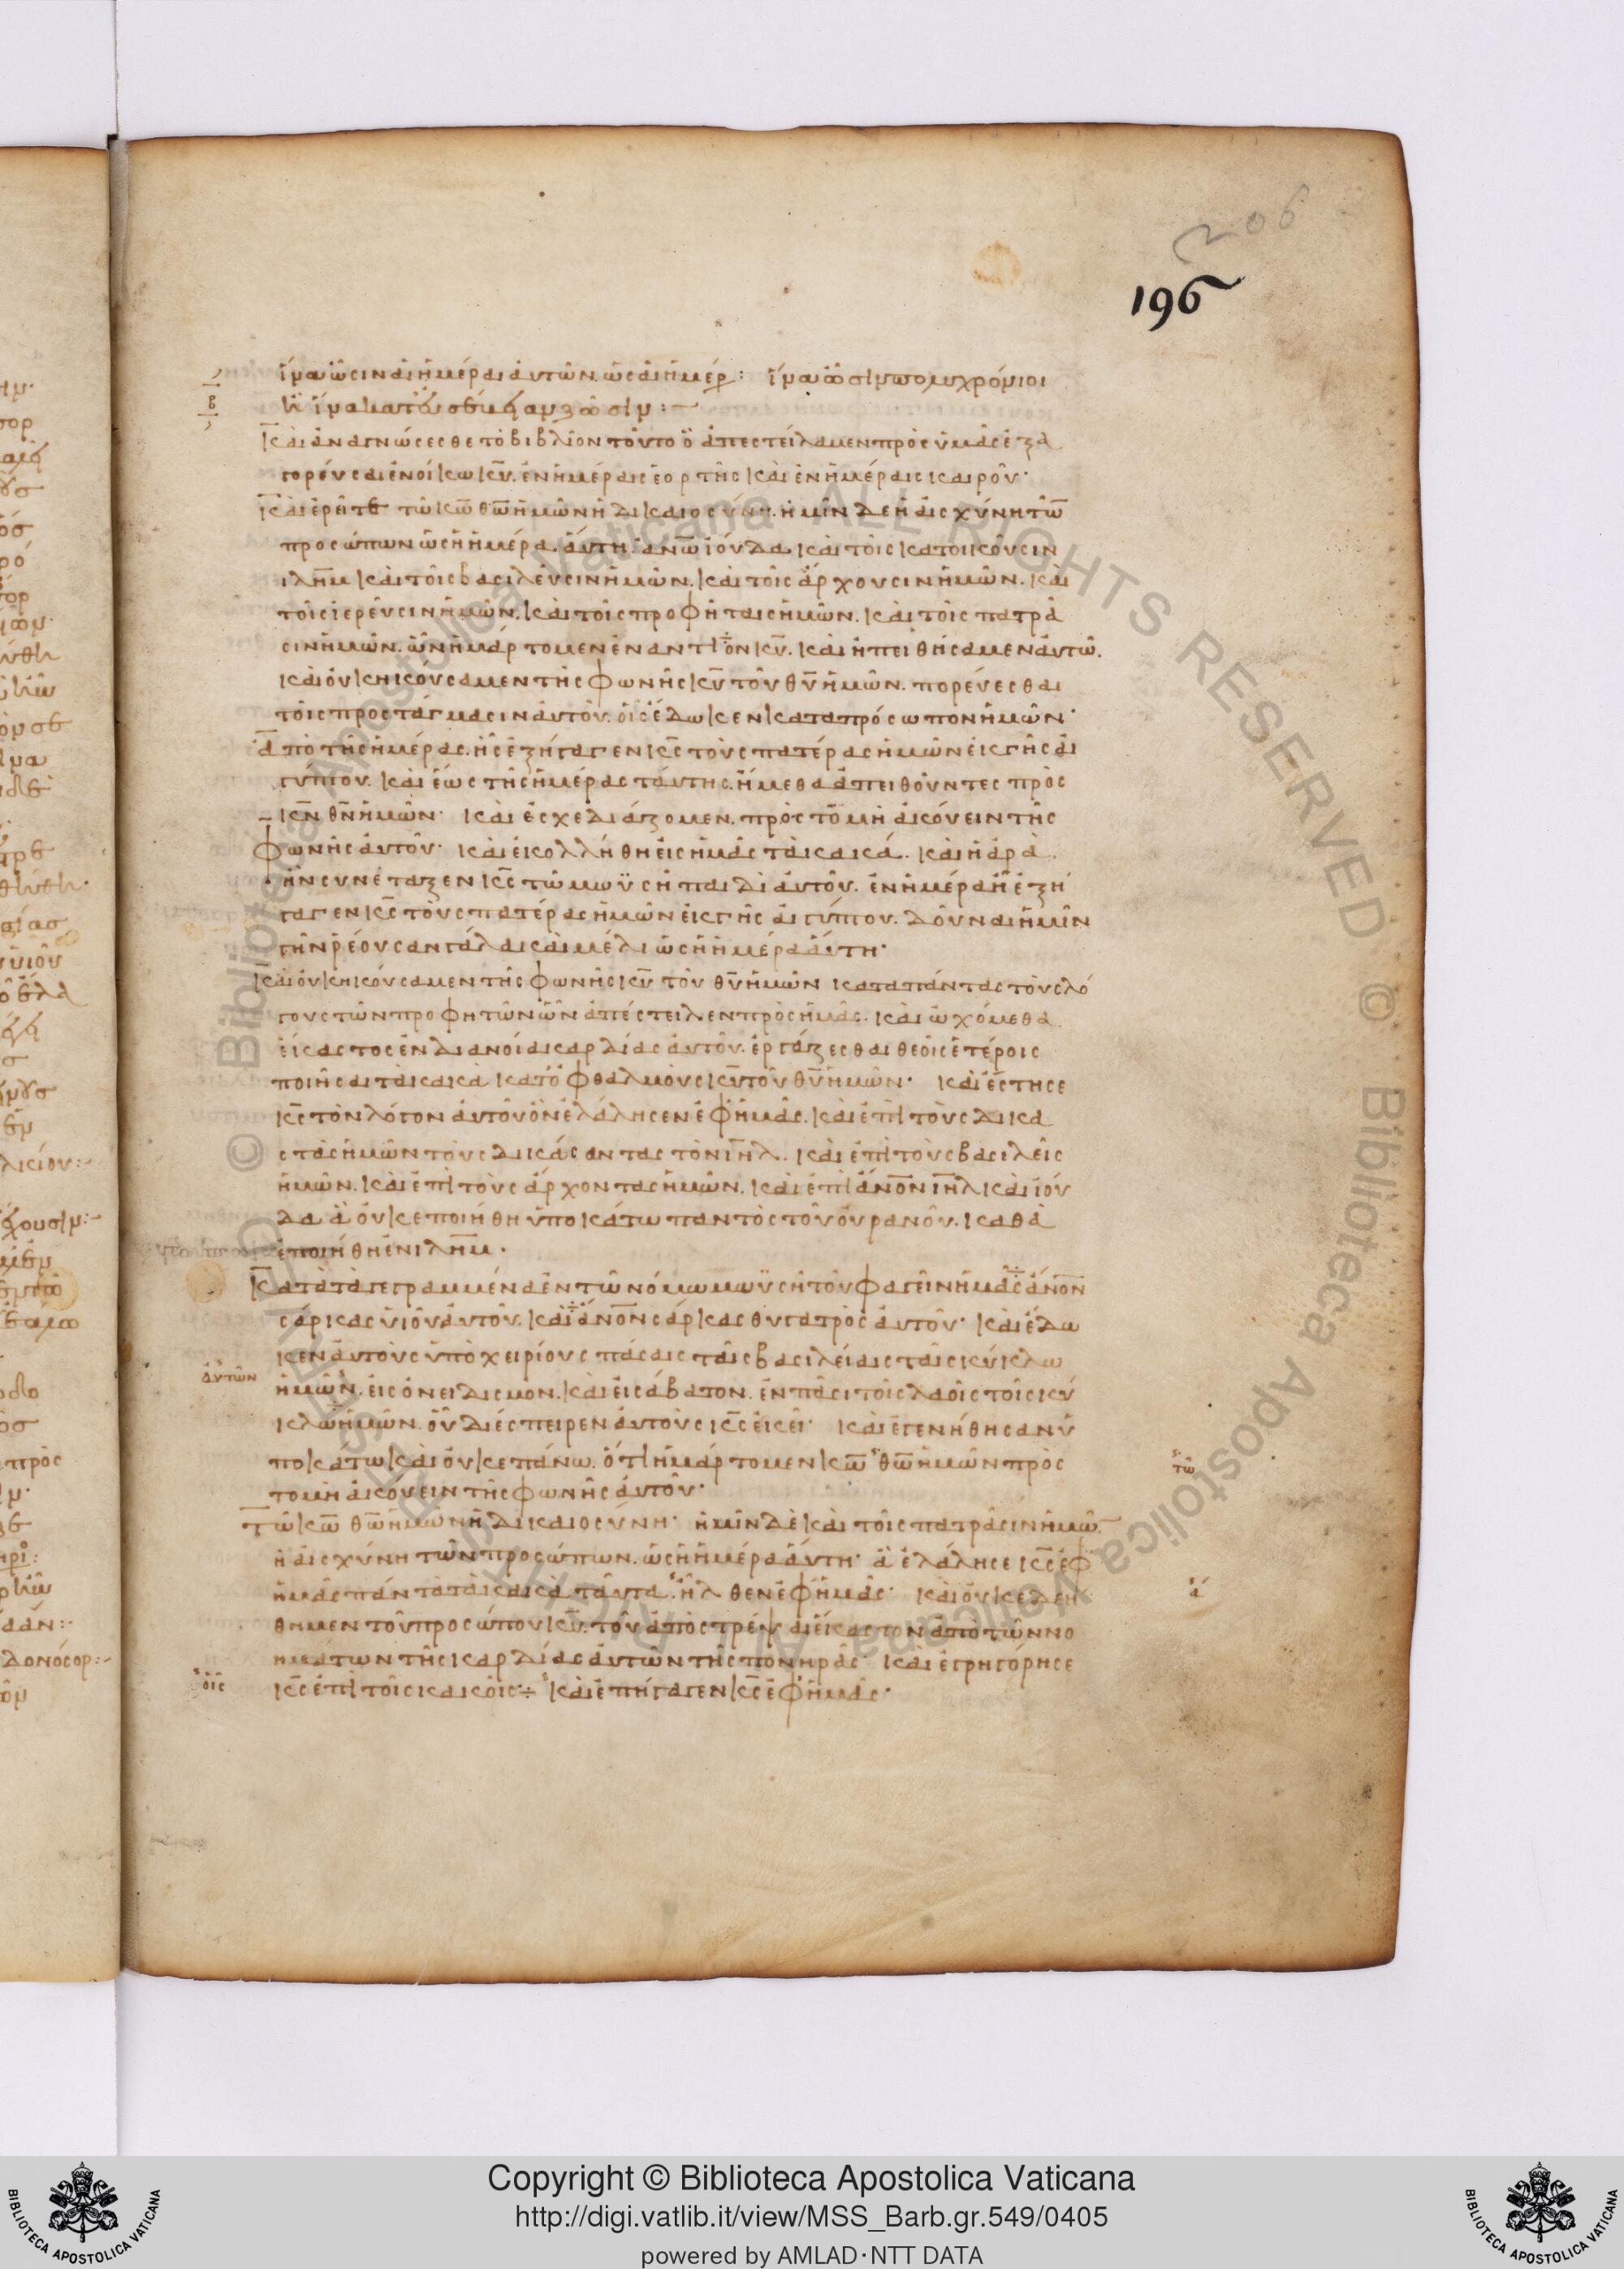 206
196
ἵνα ὦσιν αἱ ἡμέραι αὐτῶν. ὡς αἱ ἡμέρ: ἵνα ὦσιν πολυχρόνιοι
καὶ ἀναγνώσεσθε τὸ βιβλίον τοῦτο ὃ ἀπεστείλαμεν πρὸς ὑμᾶς ἐξα
γορεύσαι ἐν οἴκω κ̅υ̅. ἐν ἡμέραις ἑορτῆς καὶ ἐν ἡμέραις καιροῦ·
καὶ ἐρεῖτε τῶ κ̅ω̅ θ̅ω̅ ἡμῶν ἡ δικαιοσύνη. ἡμῖν δὲ ἡ αἰσχύνη τῶ̅
προσώπων ὡς ἡ ἡμέρα αὕτη. ἀνω̅ ἰούδα καὶ τοῖς κατοικοῦσιν
ιλη̅μ καὶ τοῖς βασιλεῦσιν ἡμῶν. καὶ τοῖς ἄρχουσιν ἡμῶν. καὶ
τοῖς ἱερεῦσιν ἡμῶν. καὶ τοῖς προφήταις ἡμῶν. καὶ τοῖς πατρά
σιν ἡμῶν. ὧν ἡμάρτομεν ἐναντίον κ̅υ̅. καὶ ἠπειθήσαμεν αὐτῶ.
καὶ οὐκ ἠκούσαμεν τῆς φωνῆς κ̅υ̅ τοῦ θ̅υ̅ ἡμῶν. πορεύεσθαι
τοῖς προστάγμασιν αὐτοῦ. οἷς ἔδωκεν κατα πρόσωπον ἡμῶν·
ἀπὸ τῆς ἡμέρας. ἧς ἐξήγαγεν κ̅ς̅ τοὺς πατέρας ἡμῶν ἐκ γῆς αἰ
γύπτου. καὶ ἕως τῆς ἡμέρας ταύτης. ἤμεθα ἀπειθοῦντες πρὸς
κ̅ν̅ θ̅ν̅ ἡμῶν· καὶ ἐσχεδιάζομεν. πρὸς τὸ μὴ ἀκούειν τῆς
φωνῆς αὐτοῦ· καὶ ἐκολλήθη εἰς ἡμᾶς τὰ κακά. καὶ ἡ ἀρὰ.
ἣν συνέταξεν κ̅ς̅ τῶ μωϋσῆ παιδὶ αὐτοῦ. ἐν ἡμέρα ἧ ἐξή
γαγεν κ̅ς̅ τοὺς πατέρας ἡμῶν ἐκ γῆς αἰγύπτου. δοῦναι ἡμῖν
γῆν ῥέουσαν γάλα καὶ μέλι ὡς ἡ ἡμέρα αὕτη·
καὶ οὐκ ἠκούσαμεν τῆς φωνῆς κ̅υ̅ τοῦ θ̅υ̅ ἡμῶν κατα πάντας τοὺς λό
γους τῶν προφητῶν ὧν ἀπέστειλεν πρὸς ἡμᾶς. καὶ ὠχόμεθα
ἕκαστος ἐν διανοία καρδίας αὐτοῦ. ἐργάζεσθαι θεοῖς ἑτέροις
ποιῆσαι τὰ κακὰ κατ' ὀφθαλμοὺς κ̅υ̅ τοῦ θ̅υ̅ ἡμῶν· καὶ ἔστησε
κ̅ς̅ τὸν λόγον αὐτοῦ ὃν ἐλάλησεν ἐφ ἡμᾶς. καὶ ἐπὶ τοὺς δικα
στὰς ἡμῶν τοὺς δικάσαντας τὸν ι̅η̅λ. καὶ ἐπὶ τοὺς βασιλεῖς
ἡμῶν. καὶ ἐπὶ τοὺς ἄρχοντας ἡμῶν. καὶ ἐπὶ ἄνο̅ν ι̅η̅λ καὶ ἰού
δα ἃ οὐκ ἐποιήθη ὑποκάτω παντὸς τοῦ οὐρανοῦ. καθὰ
ἐποιήθη ἐν ιλη̅μ.
κατὰ τὰ γεγραμμένα ἐν τῶ νόμω μωϋσῆ τοῦ φαγεῖν ἡμᾶς ἄνο̅ν̅
σάρκας υἱοῦ αὐτοῦ. καὶ ἄνο̅ν̅ σάρκας θυγατρὸς αὐτοῦ· καὶ ἔδω
κεν αὐτοὺς ὑποχειρίους πάσαις ταῖς βασιλείαις ταῖς κύκλω
αὐτῶν
ἡμῶν. εἰς ὀνειδισμὸν. καὶ εἰς ἄβατον. ἐν πᾶσι τοῖς λαοῖς τοῖς κύ
κλω ἡμῶν. οὗ διέσπειρεν αὐτοὺς κ̅ς̅ ἐκεῖ· καὶ ἐγενήθησαν ὑ
ποκάτω καὶ οὐκ ἐπάνω. ὅτι ἡμάρτομεν κ̅ω̅ θ̅ω̅ ἡμῶν πρὸς
τῶ
το μὴ ἀκούειν τῆς φωνῆς αὐτοῦ·
τῶ κ̅ω̅ θ̅ω̅ ἡμῶν ἡ δικαιοσύνη· ἡμῖν δὲ καὶ τοῖς πατράσιν ἡμῶ̅
ἡ αἰσχύνη τῶν προσώπων. ὡς ἡ ἡμέρα αὕτη· ἃ ἐλάλησε κ̅ς̅ ἐφ
ἡμᾶς πάντα τὰ κακὰ ταῦτα. ἦλθεν ἐφ ἡμᾶς· καὶ οὐκ ἐδεή
ἃ
θημεν τοῦ προσώπου κ̅υ̅. τοῦ ἀποστρέψαι ἕκαστον ἀπὸ τῶν νο
ημάτων τῆς καρδίας αὐτῶν τῆς πονηρᾶς· καὶ ἐγρηγόρησε
οἷς
κ̅ς̅ ἐπὶ τοῖς κακοῖς÷ καὶ ἐπήγαγεν κ̅ς̅ ἐφ ἡμᾶς·
© Biblioteca Apostolica Vaticana ALL RIGHTS RESERVED
Copyright © Biblioteca Apostolica Vaticana
http://digi.vatlib.it/view/MSS_Barb.gr.549/0405
powered by AMLAD·NTT DATA
BIBLIOTECA APOSTOLICA VATICANA
BIBLIOTECA APOSTOLICA VATICANA